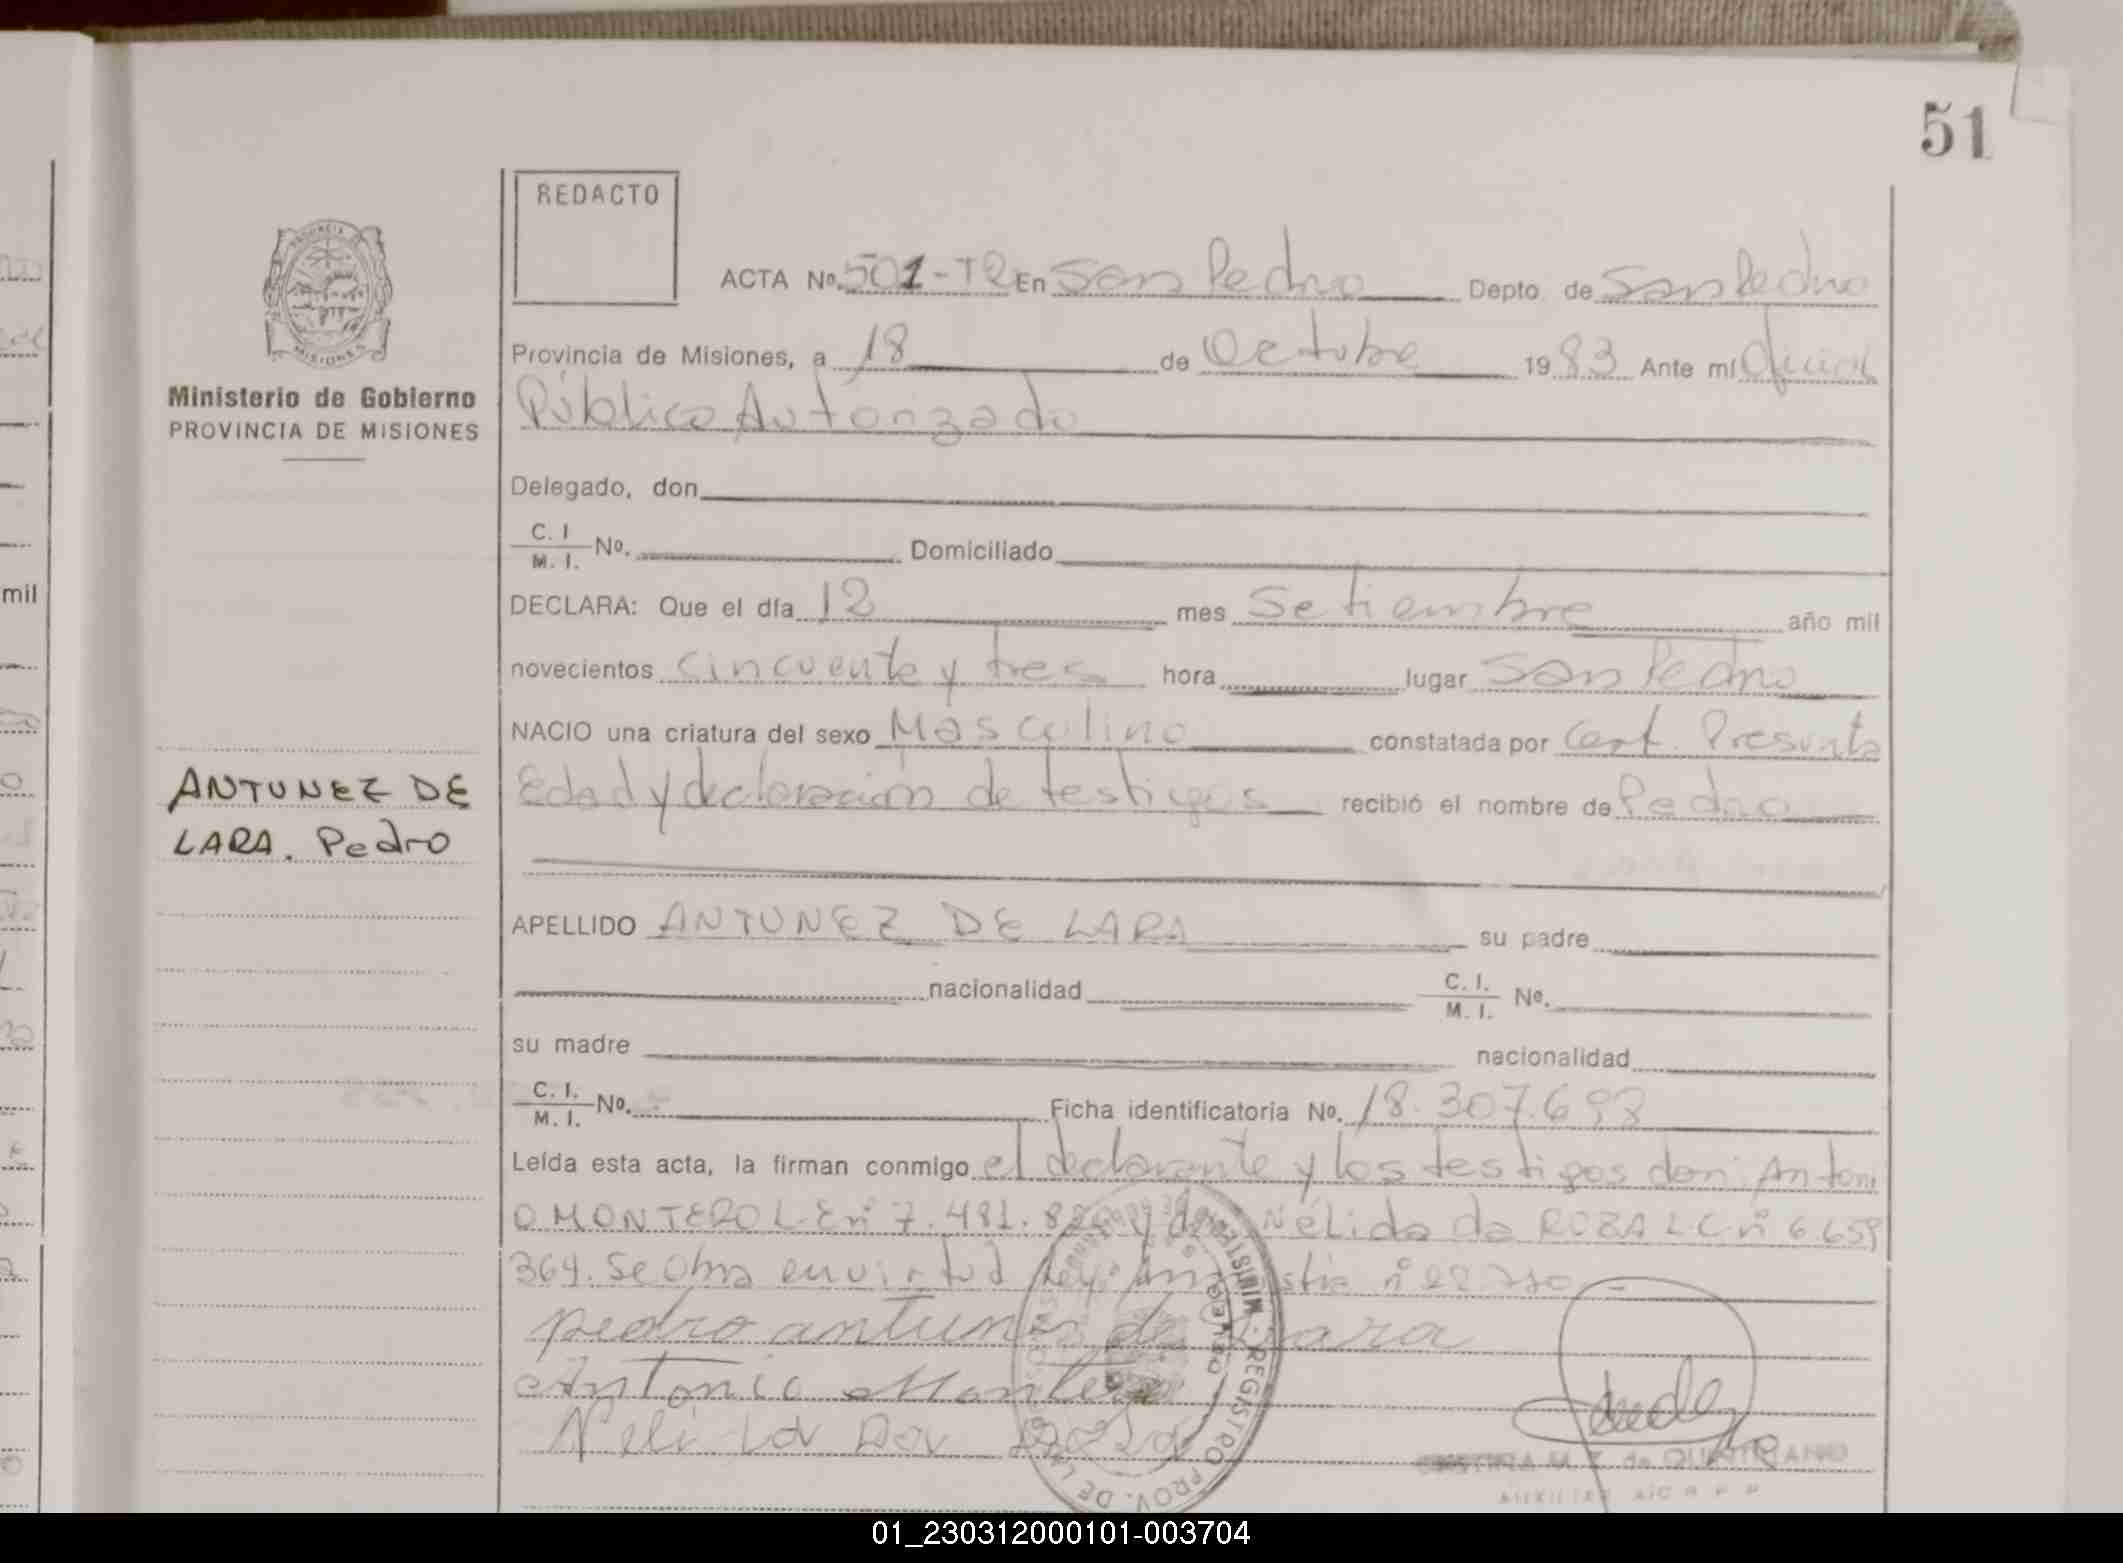 51
REDACTO
ACTA Nº. 501-TR En San Pedro Depto. de San Pedro
Provincia de Misiones, a 18 de Octubre 1983 Ante mí Oficial
Público Autorizado
PROVINCIA
MISIONES
Ministerio de Gobierno
PROVINCIA DE MISIONES
Delegado, don
C. I. M. I. Nº. Domiciliado
DECLARA: Que el día 12 mes Setiembre año mil
novecientos cincuenta y tres hora lugar San Pedro
NACIO una criatura del sexo Masculino constatada por Cert. Presunta
Edad y declaración de testigos recibió el nombre de Pedro
ANTUNEZ DE
LARA. Pedro
APELLIDO ANTUNEZ DE LARA su padre
nacionalidad C. I. M. I. Nº.
su madre nacionalidad
C. I. M. I. Nº. Ficha identificatoria Nº. 18.307.693
Leída esta acta, la firman conmigo el declarante y los testigos don: Antoni
O MONTERO L.E nº 7.481. y Nélida da ROZA L C nº 6.659
369. Se Obra en virtud Ley: Amnistia nº
pedro antunes de Lara
Antonio Montero
Nelida Da Roza
MINISTERIO DE GOBIERNO
REGISTRO PROV. DE LAS
M. T. de QUINTANO
AUXILIAR
mil
01_230312000101-003704